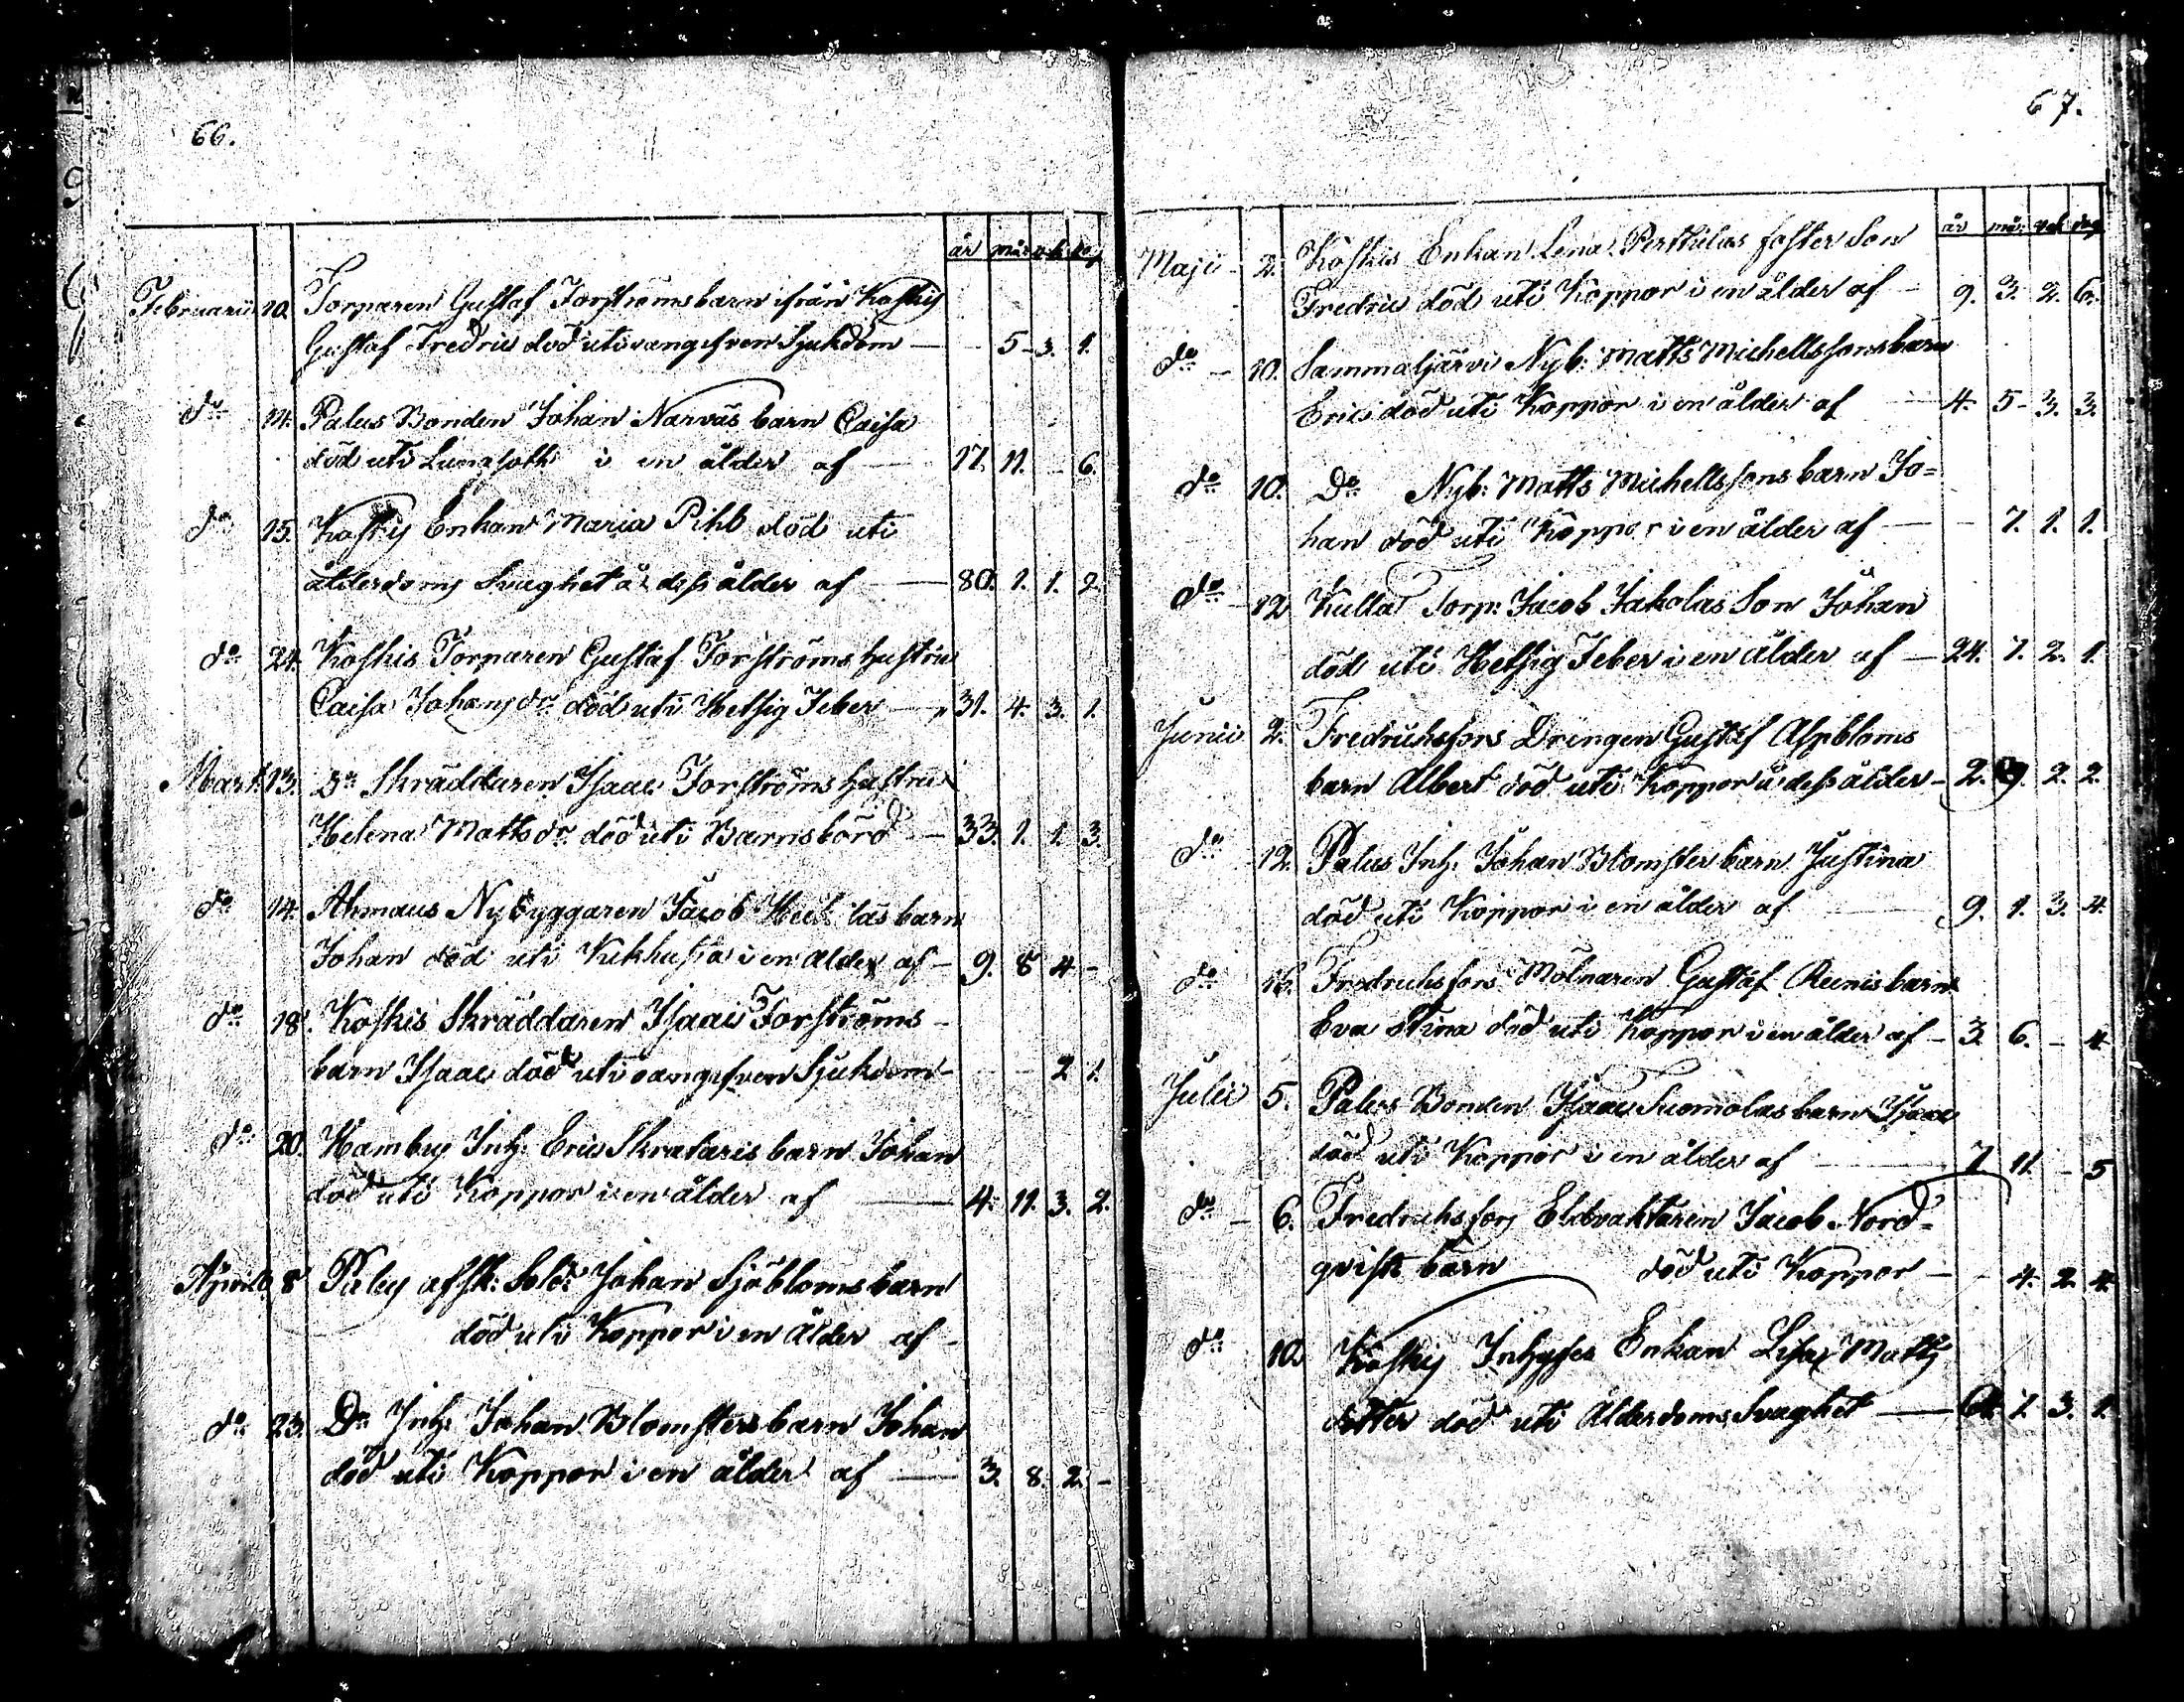 66.
år mån vek dag
Februarii 10. Torparen Gustaf Forströms barn ifrån Koskis
Gustaf Fredric död uti oangifven Sjukdom — - 5 - 3. 1.
do 14. Palus Bonden Johan Narvas barn Caisa
död uti Lungsott i en ålder af — 17. 11. - 6.
do 15. Koskis Enkan Maria Pihl död uti
ålderdoms Svaghet å dess ålder af — 80. 1. 1. 2.
do 24. Koskis Torparen Gustaf Forströms hustru
Caisa Johansdr död uti Hetsig Feber — 31. 4. 3. 1.
Mart. 13. Do Skräddaren Isaac Forströms hustru
Helena Mattsdr död uti Barnsbörd — 33. 1. 1. 3.
do 14. Ahmaus Nybyggaren Jacob barn
Johan död uti Kikhusta i en ålder af — 9. 8 4 -
do 18. Koskis Skräddaren Isaac Forströms -
barn Isaac död uti oangifven Sjukdom - - - 2 1.
do 20. Hamby Inh: Eric Skrataris barn Johan
död uti Koppor i en ålder af — 4. 11. 3. 2.
Aprill 8 Palus afsk: Sold: Johan Sjöbloms barn
död uti Koppor i en ålder af -
do 23. Do Inh: Johan Blomsters barn Johan
död uti Koppor i en ålder af — 3. 8. 2. -
67.
år mån vek dag
Maji - 2. Koskis Enkan Lena Perthulas foster Son
Fredric död uti Koppor i en ålder af - 9. 3. 2. 6.
do - 10. Sammaljärvi Nyb: Matts Michellssons barn
Eric död uti Koppor i en ålder af — 4. 5 - 3. 3.
do 10. Do Nyb: Matts Michellssons barn Jo=
han död uti Koppor i en ålder af — - 7. 1. 1.
do - 12 Kulla Torp: Jacob Jakolas Son Johan
död uti Hetsig Feber i en ålder af — 24. 7. 2. 1.
Junii 2. Fredrichsfors Drängen Gustaf Aspbloms
barn Albert död uti Koppor å dess ålder - 2. 9. 2. 2.
do - 12. Palus Inh: Johan Blomster barn Justina
död uti Koppor i en ålder af — 9. 1. 3. 4.
do 16. Fredrichsfors Mölnaren Gustaf Renis barn
Eva Stina död uti Koppor i en ålder af - 3. 6. - 4.
Julii 5. Palus Bonden Isaac Suomolas barn Isaac
död uti Koppor i en ålder af — 7 11. - 5
do - 6. Fredrichsfors Eldvaktaren Jacob Nord=
qvists barn död uti Koppor - - 4. 2. 4.
do 10. Koskis Inhyses Enkan Lisa Matts
dotter död uti Ålderdoms Svaghet — 7. 3. 1.